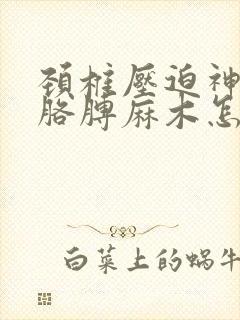 頚椎壓迫神
胳膊麻木怎
白菜上的蜗牛